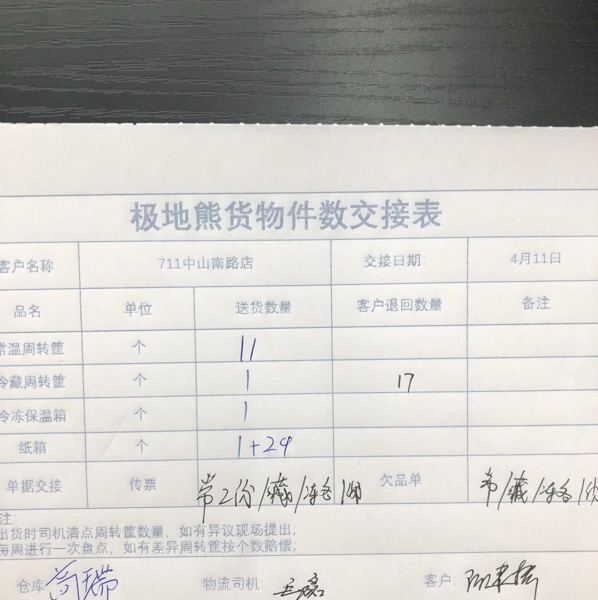 极地熊货物件数交接表
客户名称 711中山南路店 交接日期: 4月11日
品名 单位 送货数量 客户退回数量 备注
常温周转筐 个 11
冷藏周转筐 个 1 17
冷冻保温箱 个 1
纸箱 个 1+24
单据交接 传票 常2份/藏/冻各1份 欠品单 常/藏/冻各1份
注:
出货时司机清点周转筐数量、如有异议现场提出;
每周进行一次盘点、如有差异周转筐按个数赔偿;
仓库: 高瑞 物流司机: 客户: